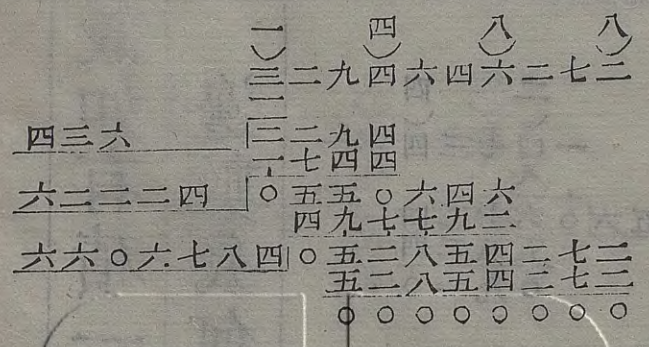 一) 四) 八) 八)
三二九四六四六二七二
一
四三六 二二九四
一七四四
六二二二四 〇五五〇六四六
四九七七九二
六六〇六七八四 〇五二八五四二七二
五二八五四二七二
〇〇〇〇〇〇〇〇